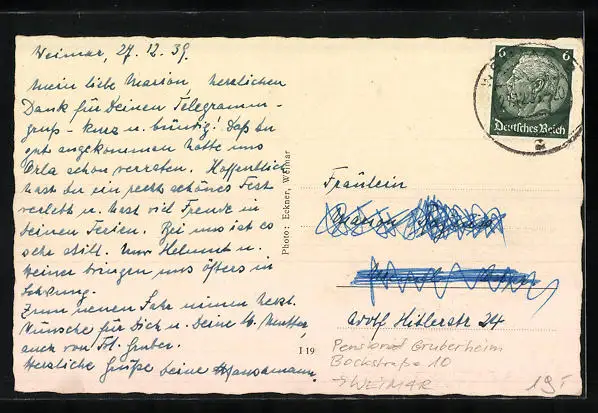 Weimar, 27.12.39.
Mein liebe Marion! Herzlichen
Dank für Deinen Telegramm-
gruß - kurz u. bündig! Daß Du
gut angekommen hatte uns
Orla schon verraten. Hoffentlich
hast Du ein recht schönes Fest
verlebt u. hast viel Freude in
Deinen Ferien. Bei uns ist es
sehr still. Nur Helmut u.
Heiner bringen uns öfters in
Zum neuen Jahr nimm herzl.
Wünsche für Dich u. Deine lb. Mutter,
auch von Frl. Gruber.
Herzliche Grüße Deine
Photo: Eckner, Weimar
I 19
6 6
Deutsches Reich
a
Fräulein
Marion
Adolf Hitlerstr 24
Pensionat Gruberheim
Bockstraße 10
WEIMAR